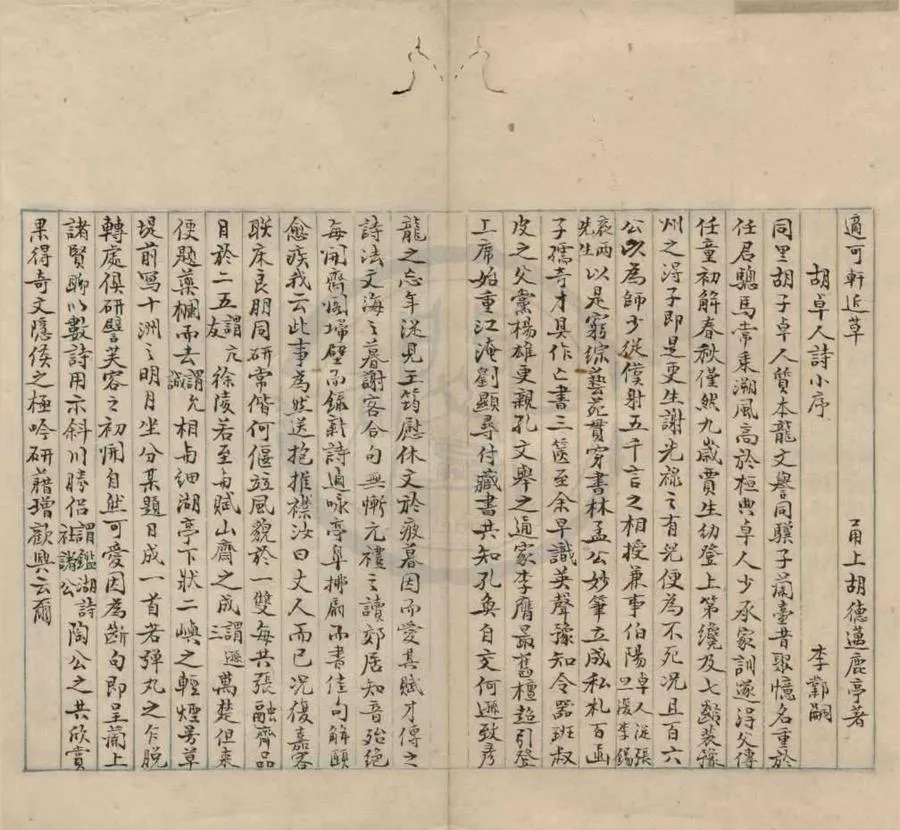 適可軒近草 甬上胡德邁鹿亭著
胡卓人詩小序 李鄴嗣
同里胡子卓人質本龍文譽同驥子蘭臺昔聚憶名重於
任君驄馬常乘溯風高於桓典卓人少承家訓遂得父傳
任童初解春秋僅然九歲賈生幼登上第纔及七齡裴豫
州之得子即是更生謝光祿之有兒便為不死況且百六
公以為師少從僕射五千言之相授兼事伯陽卓人從張
哀兩先生以是窮綜藝苑貫穿書林孟公妙筆立成私札百函
子孺奇才具作亡書三篋至余早識英聲豫知令器班叔
皮之父黨楊雄更親孔文舉之通家李膺最舊檀超引登
上席始重江淹劉顯尋付藏書共知孔奐自交何遜致彥
龍之忘年從見王筠慰休文於疲暮因而愛其賦才傳之
詩法文海之暮謝客合句無慚元禮之讀郊居知音殆絕
每開齋閣埽壁而錄新詩適咏亭皋拂扇而書佳句解頤
愈疾我云此事為然送抱推襟汝曰丈人而已況復嘉客
聯床良朋同研常偕何偃遜風貌於一雙每共張融齊品
目於二五謂亢友徐陵若至每賦山齋之成謂遜三萬楚但來
便題藥欄而去謂允誠相與細湖亭下狀二嶼之輕煙芳草
堤前寫十洲之明月坐分某題日成一首若彈丸之乍脫
轉處俱研譬芙容之初開自然可愛因為斷句即呈蘭上
諸賢聊以數詩用示斜川勝侶謂鑑湖詩社諸公陶公之共欣賞
果得奇文隱侯之極吟研藉增歡興云爾